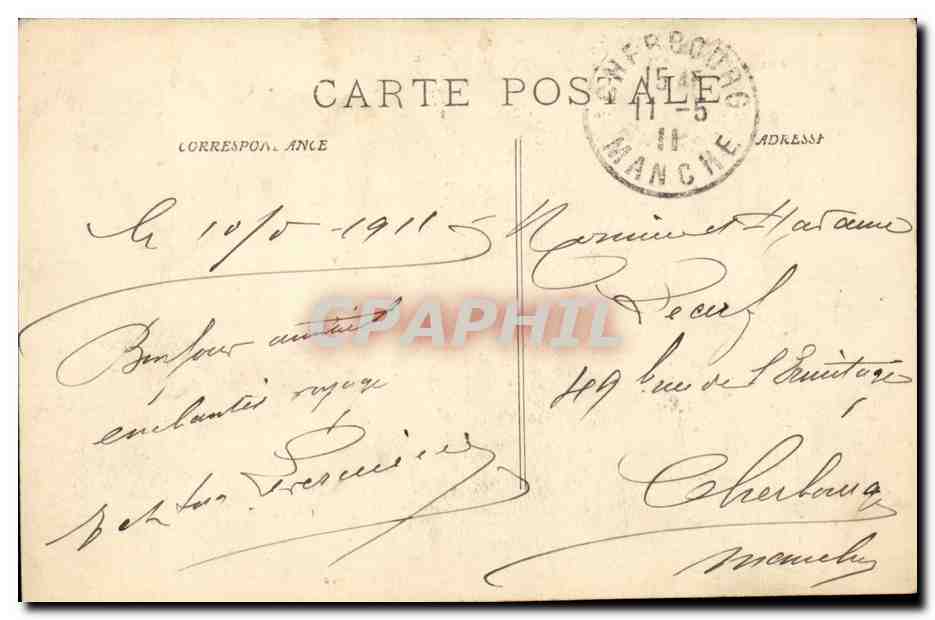 CARTE POSTALE
CHERBOURG
15 45
11 - 5
11
MANCHE
CORRESPONDANCE
ADRESSE
Le 10/5 - 1911 -
Bonjour amitiés
enchantés voyage
CPAPHIL
Monsieur et Madame
49 rue de l'Ermitage
Cherbourg
Manche